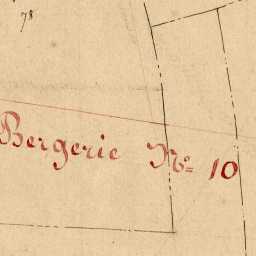 78
Bergerie Nº 10